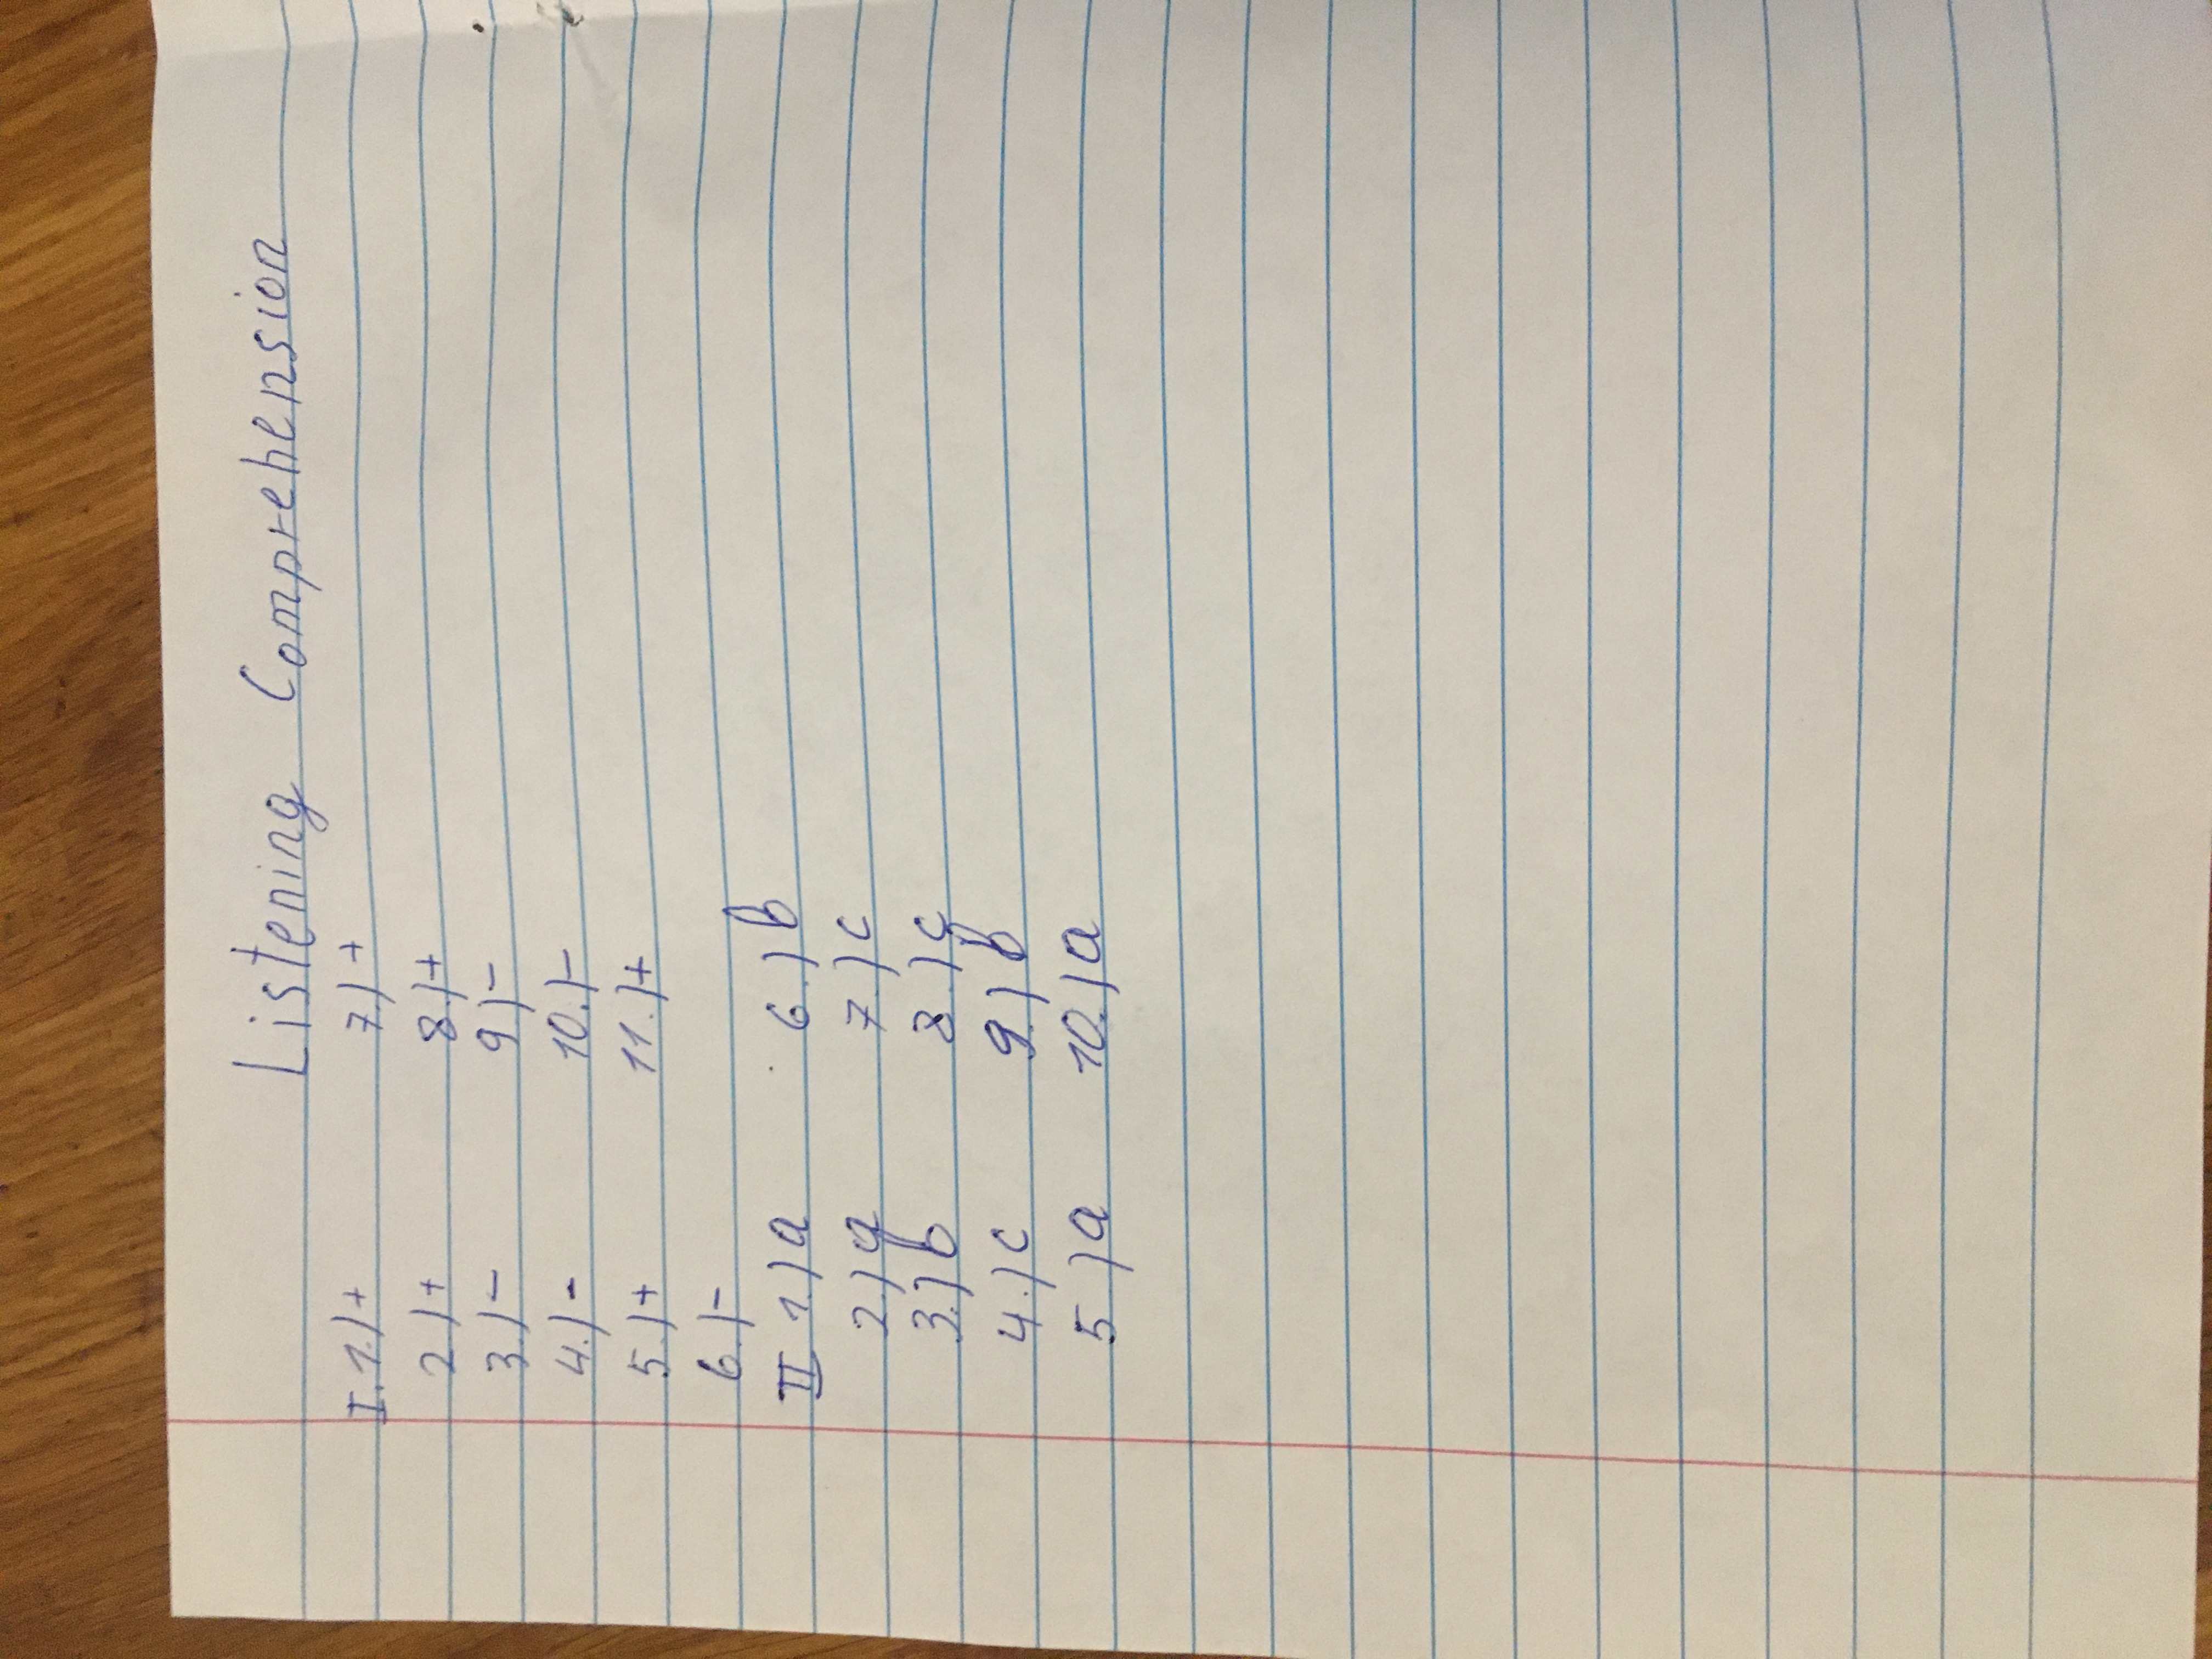 Listening Comprehension
I. 1.) + 7.) +
2.) + 8.) +
3.) - 9.) -
4.) - 10.) -
5.) + 11.) +
6.) -
II 1.) a 6.) b
2.) a 7.) c
3.) b 8.) c
4.) c 9.) b
5.) a 10.) a